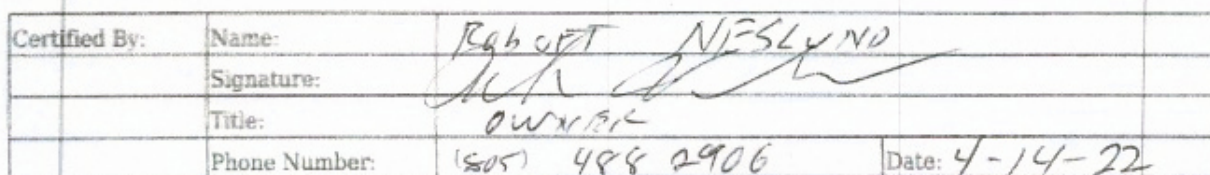 Certified By: Name: Robert NESLUND
Signature:
Title: OWNER
Phone Number: (805) 488 2906 Date: 4-14-22